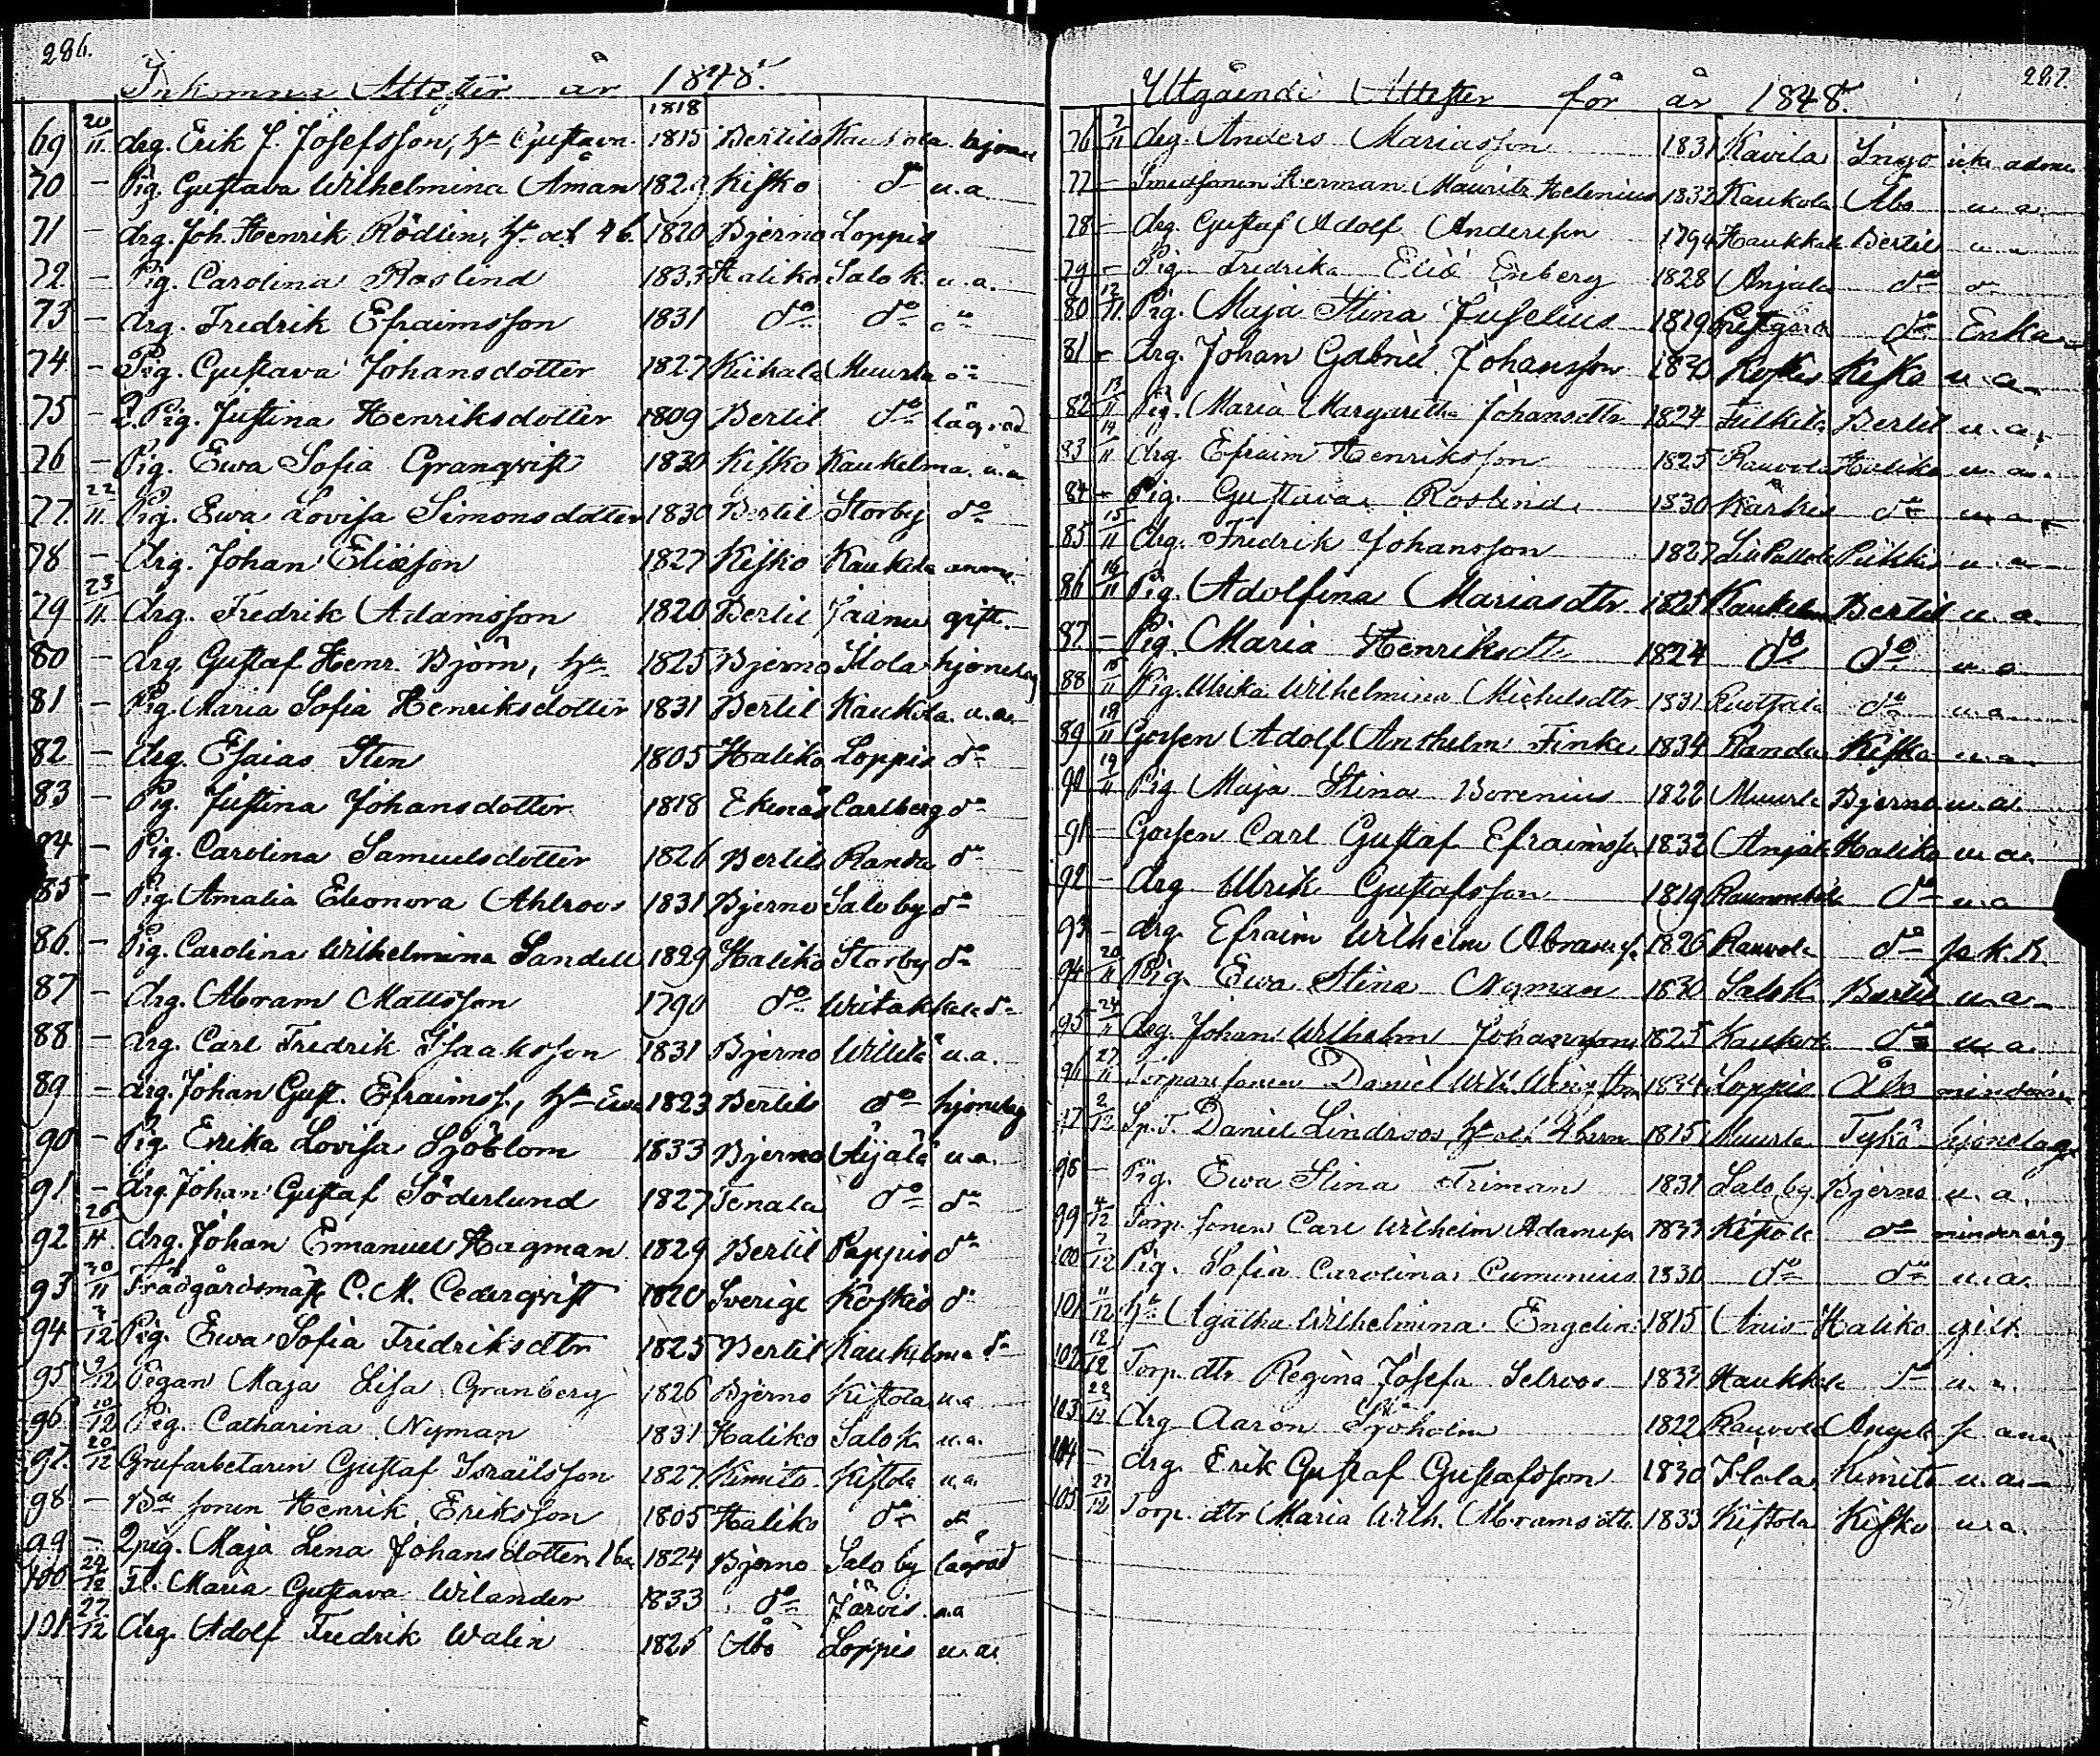 286.
Inkomna Attester år 1848.
1818
69 20/11 drg. Erik J. Josefsson, h:u Gustava 1815 Bertils Kaukola hjone
70 — Pig. Gustava Wilhelmina Åman 1829 Kisko do u.a.
71 — drg. Joh. Henrik Rödlin, h:u och 4 b. 1820 Bjerno Loppis
72 — Pig. Carolina Roslind 1833 Haliko Salo k. u.a.
73 — drg. Fredrik Efraimsson 1831 do do do
74 — Pig. Gustava Johansdotter 1827 Kiikala Muurla do
75 — Q. Pig. Justina Henriksdotter 1809 Bertil do lägrad
76 — Pig. Ewa Sofia Granqvist 1830 Kisko Kaukelma u.a
77. 22/11 Pig. Ewa Lovisa Simonsdotter 1830 Bertil Storby do
78 — drg. Johan Eliasson 1827 Kisko Kaukola
79 23/11 drg. Fredrik Adamsson 1820 Bertil Paanu gift.
80 — drg Gustaf Henr. Björn, h:u 1825 Bjerno Ilola hjonelag
81 — Pig. Maria Sofia Henriksdotter 1831 Bertil Kaukola u.a.
82 — drg. Esaias Sten 1805 Haliko Loppis do
83 — Pig. Justina Johansdotter 1818 Ekenäs Carlberg do
84 — Pig. Carolina Samuelsdotter 1826 Bertils Randa do
85 — Pig. Amalia Eleonora Ahlroos 1831 Bjerno Salo by do
86. — Pig. Carolina Wilhelmina Sandell 1829 Haliko Storby do
87 — drg. Abram Mattsson 1790 do Writakkala do
88 — drg. Carl Fredrik Isaaksson 1831 Bjerno Willilä u.a.
89 — drg. Johan Gust. Efraimss., h:u Ewa 1823 Bertils do hjonelag
90 — Pig Erika Lovisa Sjöblom 1833 Bjerno Äijälä u.a.
91 — drg. Johan Gustaf Söderlund 1827 Tenala do do
92 26/11. drg. Johan Emanuel Hagman 1829 Bertil Pappis do
93 30/11 Trädgårdsmäst C. M. Cederqvist 1820 Sverige Koskis do
94 7/12 Pig. Ewa Sofia Fredriksdtr 1825 Bertil Kaukelma do
95 9/12 Pigan Maja Lisa Granberg 1826 Bjerno Kistola u.a
96 10/12 Pig. Catharina Nyman 1831 Haliko Salo k. u.a.
97. 20/12 Grufarbetaren Gustaf Israelsson 1827. Kimito. Kistola u.a.
98 — Bde sonen Henrik Eriksson 1805 Haliko do do
99 — Qpig. Maja Lena Johansdotter, 1 ba 1824 Bjerno Salo by lägrad
100 24/12 Fl. Maria Gustava Wilander 1833 do Järvis u.a
101 27/12 drg. Adolf Fredrik Walin 1825 Åbo Loppis u.a.
287.
Utgåendi Attester för år 1848.
76 7/11 drg. Anders Mariasson 1831 Kavila Ingo icke admi
77 — Smedsonen Herman Mauritz Helenius 1832 Kaukola Åbo u.a.
78 — drg. Gustaf Adolf Andersson 1794 Haukkala Bertil u.a
79 — Pig. Fredrika Elis Enberg 1828 Anjala do do
80 12/11. Pig. Maja Stina Juselius 1819 Prestgård do Enka
81 — drg. Johan Gabriel Johansson 1830 Koskis Kisko u.a.
82 13/11 Pig. Maria Margaretha Johansdtr 1824 Fulkila Bertil u.a.
83 14/11 drg. Efraim Henriksson 1825 Rauvola Haliko u.a.
84 — Pig. Gustava Roslind 1830 Kärkis do u.a.
85 15/11 drg. Fredrik Johansson 1827 Piikkis u.a
86 16/11 Pig. Adolfina Mariasdtr 1825 Kaukelma Bertil u.a.
87. — Pig. Maria Henriksdtr 1824 do do u.a
88 18/11 Pig. Ulrika Wilhelmina Michelsdtr 1831 Ruotsala do u.a.
89 18/11 Gossen Adolf Anthelm Finke 1834 Randa Kisko u.a.
90 19/11 Pig Maja Stina Borenius 1822 Muurla Bjerno u.a.
91 — Gossen Carl Gustaf Efraimsson 1832 Anjala Haliko u.a.
92 — drg Ulrik Gustafsson 1819 do u.a
93 — drg. Efraim Wilhelm Abramss. 1826 Rauvola do
94 20/11 Pig. Ewa Stina Nyman 1830 Salo k Bertil u.a.
95 24/11 drg. Johan Wilhelm Johansson 1825 Kaukola do u.a.
96 27/11 Torparesonen Daniel Wilh. 1834 Loppis Åbo minderårig
97 2/12 Sp. T. Daniel Lindroos, h:u och 4 barn 1815 Muurla Tykö hjonelag
98 — Pig. Ewa Stina Friman 1831 Salo by Bjerno u.a.
99 4/12 Torp. sonen Carl Wilhelm Adamsson 1833 Kistola do minderårig
100 7/12 Pig. Sofia Carolina Cumenius 1830 do do u.a.
101 11/12 h:u Agatha Wilhelmina Engelin 1815 Anis Haliko gift.
102 12/12 Torp. dtr Regina Josefa Selroos 1833 Haukkala do u.a.
103 23/12 drg Aaron Sjöholm 1822 Rauvola Angela
104 — drg. Erik Gustaf Gustafsson 1830 Ilola Kimito u.a.
105 27/12 Torp. dtr Maria Wilh. Abramsdtr. 1833 Kistola Kisko u.a.